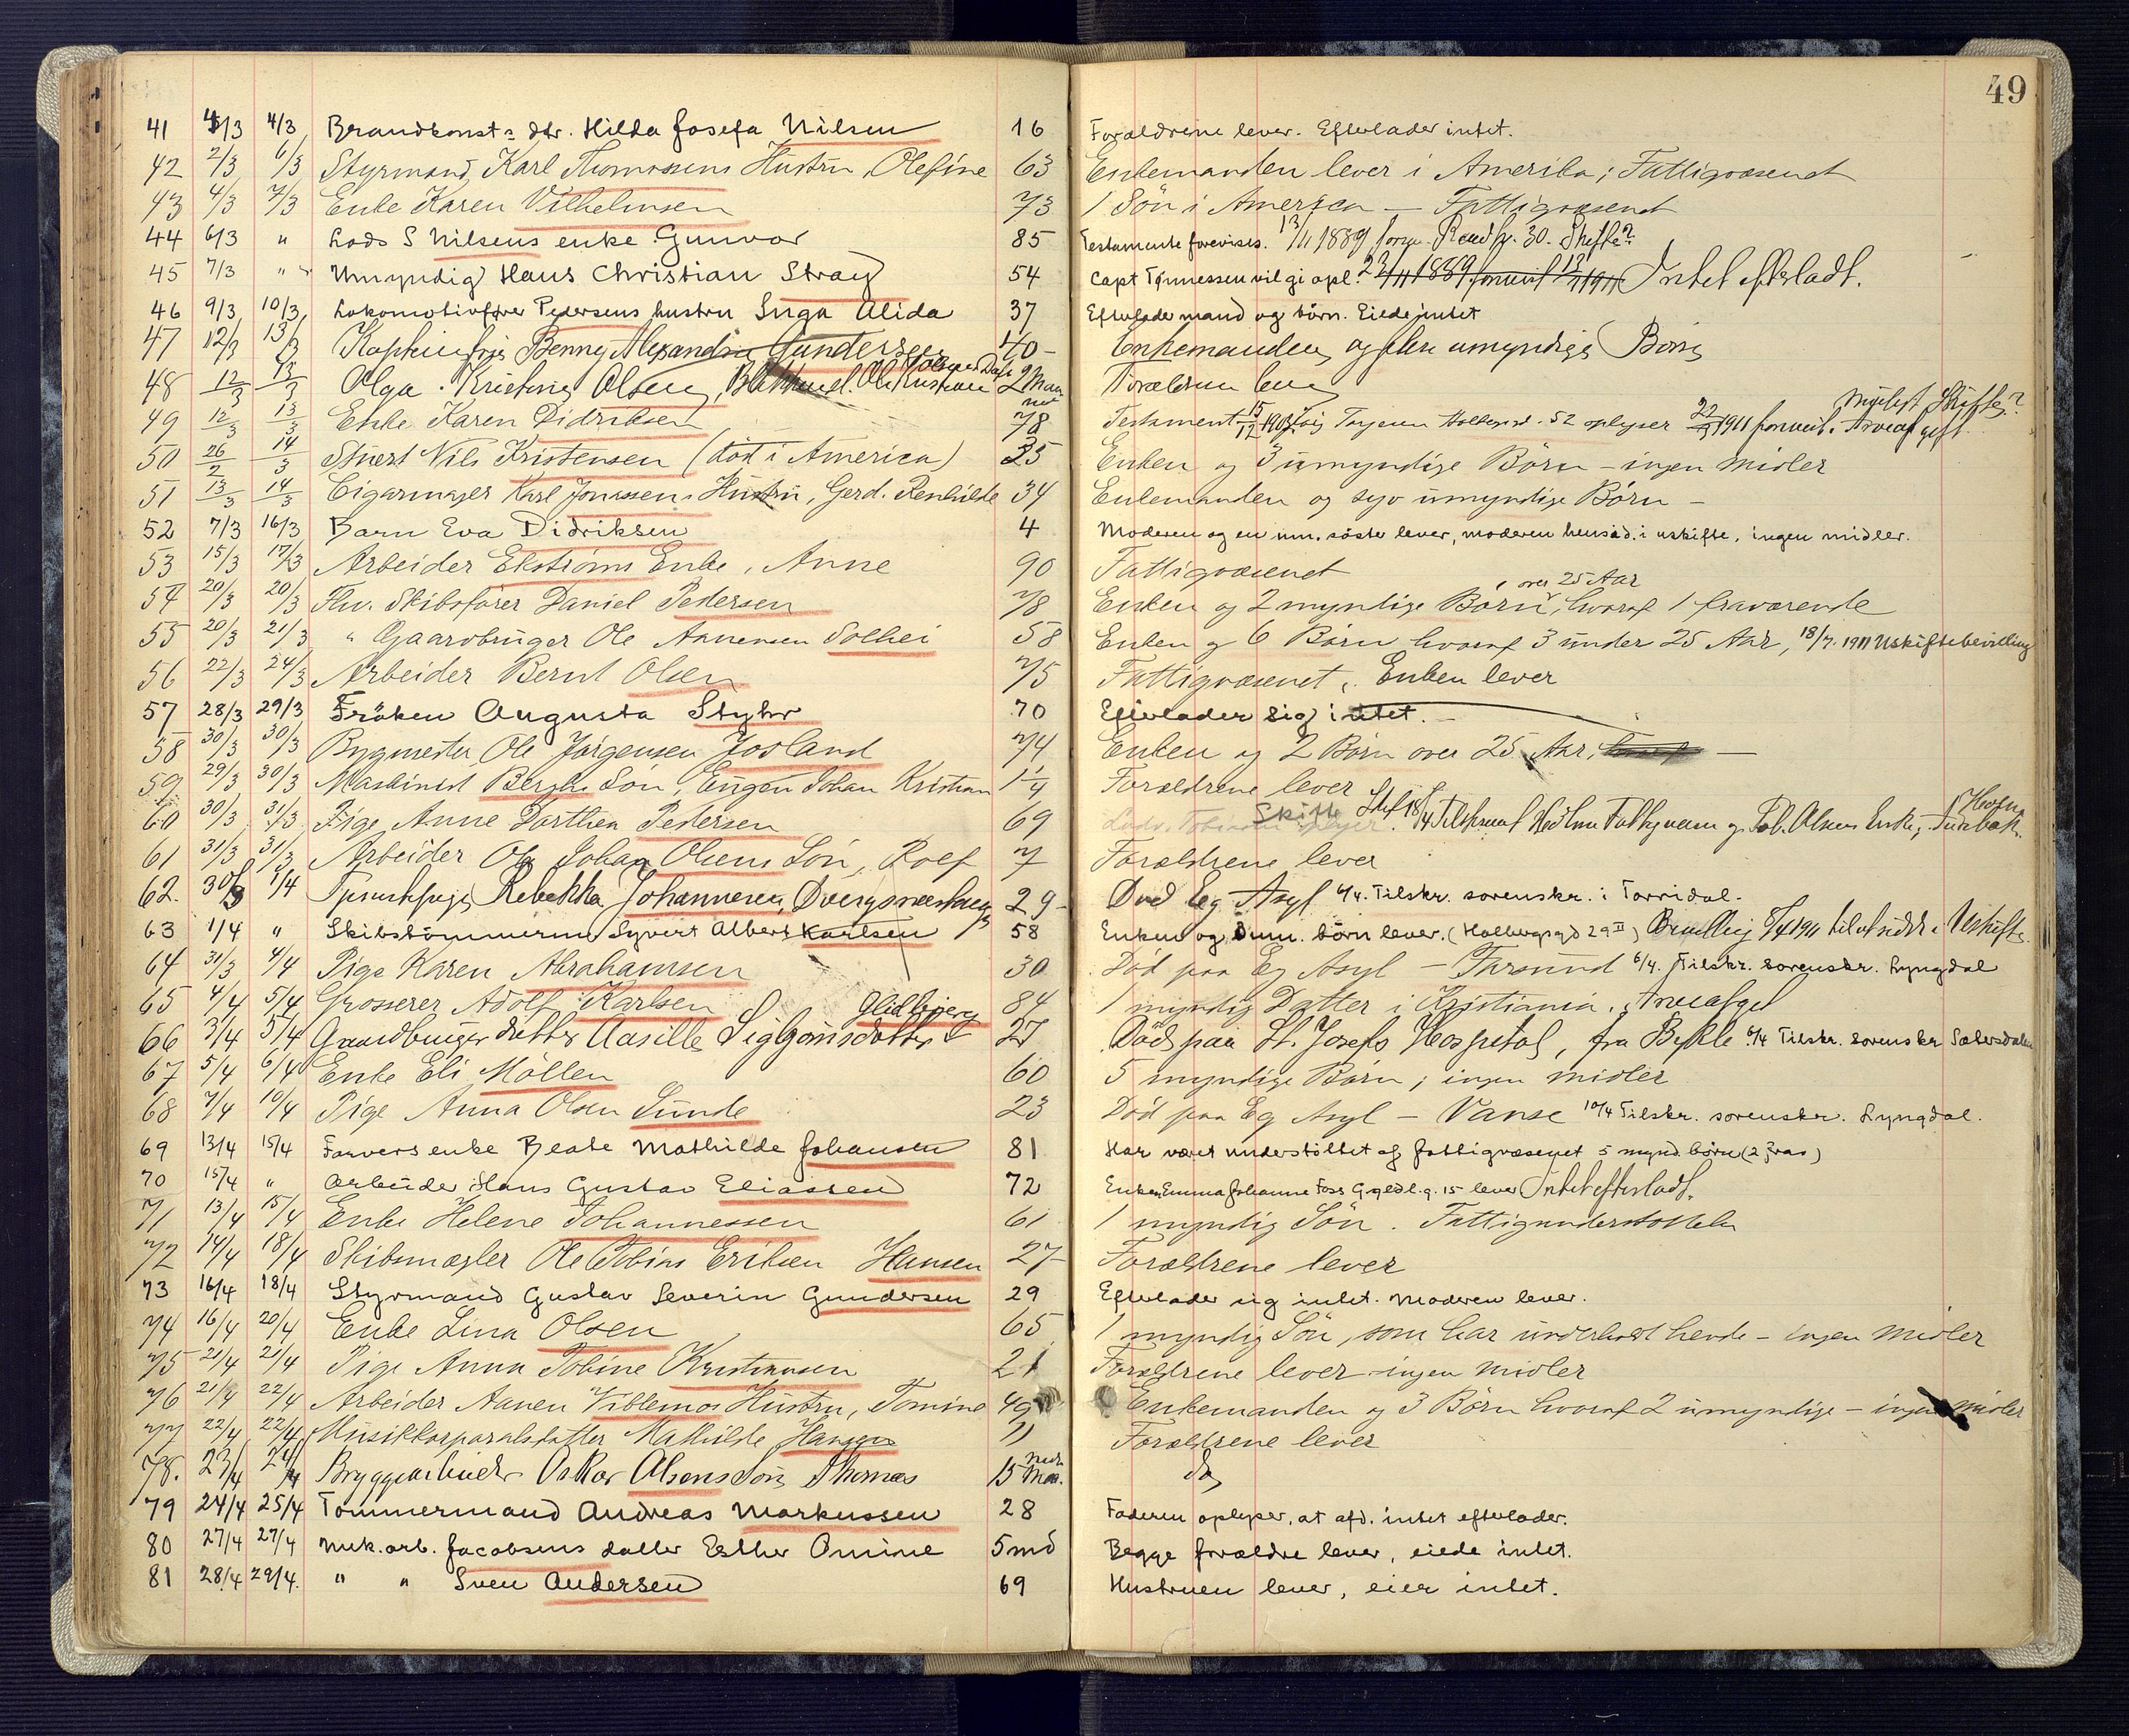 49
41 4/3 4/3 Brandkonst.s dtr. Hilda Josefa Nilsen 16 Forældrene lever. Efterlader intet.
42 2/3 6/3 Styrmand Karl Thomassens Hustru, Olefine 63 Enkemanden lever i Amerika; Fattigvæsenet
43 4/3 7/3 Enke Karen Vilhelmsen 73 1 Sön i America — Fattigvæsenet
44 6/3 " Lods S Nilsens enke Gunvor 85 Testamente forevises. 13/11 1889 30. Skifte?
45 7/3 " Umyndig Hans Christian Stray 54 Capt Tönnessen vil gi opl. 23/11 1889 Intet efterladt.
46 9/3 10/3 Lokomotivfører Pedersens hustru Inga Alida 37 Efterlader mand og börn. Eiede intet
47 12/3 13/3 Kapteinfrue Benny Alexandra Gundersen 40 - Enkemanden og flere umyndige Börn
48 12/3 13/3 Olga Kristine Olsen, Ole Kristian Olsens Datr 2 Maaneder Forældrene lever
49 12/3 13/3 Enke Karen Didriksen 78 Testament 15/12 1903. Torjesen Holbergsgd. 52 oplyser 22/3 1911 Arveafgift. Skifte?
50 26/2 14/3 Stuert Nils Kristensen (död i America) 35 Enken og 3 umyndige Börn - ingen midler
51 13/3 14/3 Cigarmager Karl Jonassens Hustru, Gerd. Renhilde 34 Enkemanden og syv umyndige Börn -
52 7/3 16/3 Barn Eva Didriksen 4 Moderen og en um. söster lever, moderen hensad i uskifte, ingen midler.
53 15/3 17/3 Arbeider Ekströms Enke, Anne 90 Fattigvæsenet
54 20/3 20/3 Fhv. Skibsförer Daniel Pedersen 78 Enken og 2 myndige Börn over 25 Aar, hvoraf 1 fraværende
55 20/3 21/3 " Gaardbruger Ole Aanensen Solhei 58 Enken og 6 Börn hvoraf 3 under 25 Aar, 18/7. 1911 Uskiftebevilling
56 22/3 24/3 Arbeider Bernt Olsen 75 Fattigvæsenet, Enken lever
57 28/3 29/3 Fröken Augusta Styhr 70 Efterlader sig intet.
58 30/3 30/3 Bygmester Ole Jörgensen Josland 74 Enken og 2 Börn over 25 Aar, —
59 29/3 30/3 Maskinist Berghs Sön, Eugen Johan Kristian 1 1/4 Forældrene lever
60 30/3 31/3 Pige Anne Dorthea Pedersen 69 Skifte Olsens Enke,
61 31/3 31/3 Arbeider Ole Johan Olsens Sön, Rolf 7 Forældrene lever
62. 30/3 1/4 Tjenestepige Rebekka Johannesen, 29 - Död Eg Asyl 6/4. Tilskr. sorenskr. i Torridal.
63 1/4 " Skibstömmermand Syvert Albert Karlsen 58 Enken og um. börn lever. (Holbergsgd 29 II) Bevilling 8/4 1911 til at sidde i Uskifte
64 31/3 4/4 Pige Karen Abrahamsen 30 Död paa Eg Asyl - Farsund 6/4. Tilskr. sorenskr. Lyngdal
65 4/4 5/4 Grosserer Adolf Karlsen 84 1 myndig Datter i Kristiania. Arveafgift
66 3/4 5/4 Gaardbruger datter Aasille Sigbjörnsdotter Glidbjerg 27 Död paa St. Josefs Hospital, fra Bykle 6/4 Tilskr. sorenskr Sætersdalen
67 5/4 6/4 Enke Eli Möllen 60 5 myndige Börn; ingen midler
68 7/4 10/4 Pige Anna Olsen Sunde 23 Död paa Eg Asyl - Vanse 10/4 Tilskr. sorenskr. Lyngdal.
69 13/4 15/4 Farvers enke Beate Mathilde Johansen 81 Har været understöttet af fattigvæsenet 5 mynd. börn (2 frav)
70 15/4 " Arbeider Hans Gustav Eliassen 72 Enken Emma Johanne Foss Gyldl. g. 15 lever Intet efterladt.
71 13/4 15/4 Enke Helene Johannessen 61 1 myndig Sön. Fattigunderstöttelse
72 14/4 18/4 Skibsmægler Ole Tobias Eriksen Hansen 27- Forældrene lever
73 16/4 18/4 Styrmand Gustav Severin Gundersen 29 Efterlader sig intet. Moderen lever.
74 16/4 20/4 Enke Lina Olsen 65 1 myndig Sön, som har underholdt hende - ingen midler
75 21/4 21/4 Pige Anna Tobine Kristiansen 21 Forældrene lever - ingen midler
76 21/4 22/4 Arbeider Aanen Viblemos Hustru, Tomine 49 Enkemanden og 3 Börn hvoraf 2 umyndige - ingen midler
77 22/4 22/4 Musikkorporalsdatter Mathilde Hansen 11 Forældrene lever
78. 23/4 24/4 Bryggearbeider Oskar Olsens Sön, Thomas 15 do
79 24/4 25/4 Tömmermand Andreas Markussen 28 Faderen oplyser, at afd. intet efterlader.
80 27/4 27/4 Mek. arb. Jacobsens datter Esther Omine 5 md Begge forældre lever, eiede intet.
81 28/4 29/4. " " Sven Andersen 69 Hustruen lever, eier intet.